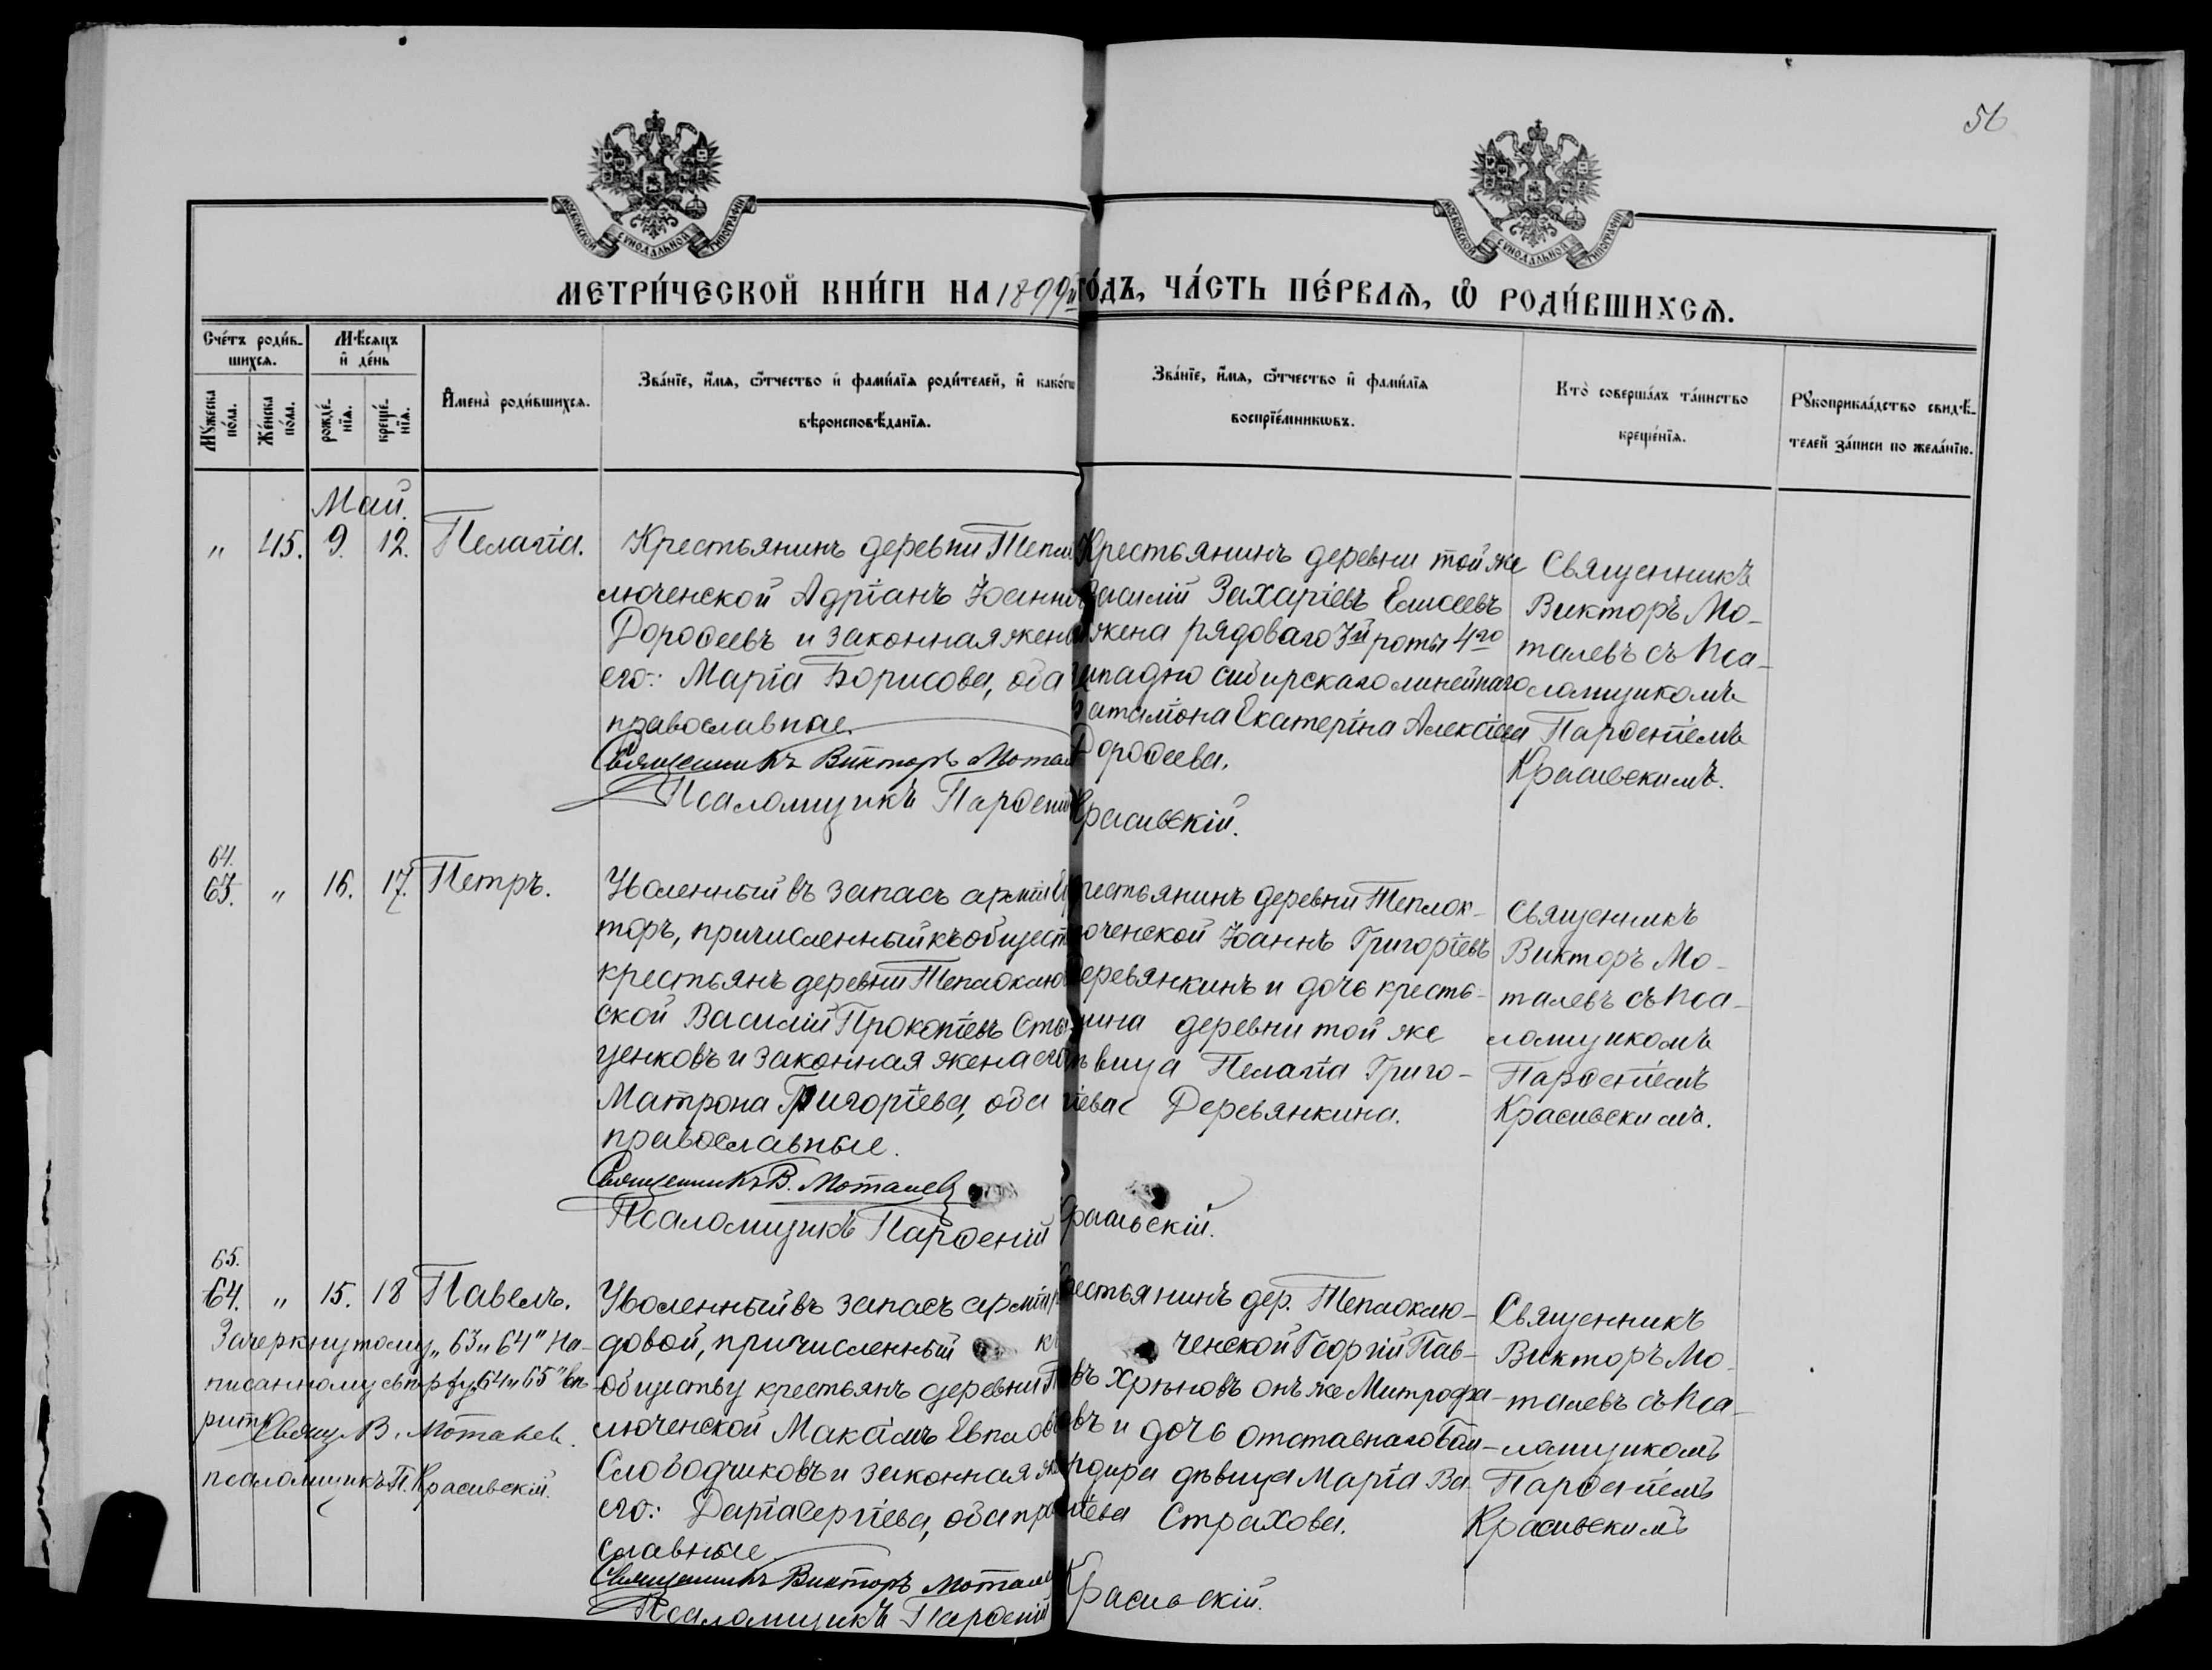 56
МОСКОВСКОЙ СѴНОДАЛЬНОЙ ТИПОГРАФІИ
МОСКОВСКОЙ СѴНОДАЛЬНОЙ ТИПОГРАФІИ
МЕТРИ́ЧЕСКОЙ КНИ́ГИ НА 1899й ГО́ДЪ, ЧА́СТЬ ПЕ́РВАѦ, Ѽ РОДИ́ВШИХСѦ.
Сче́тъ роди́в-
шихсѧ.
Мѣ́сѧцъ
и҆ де́нь
Мꙋ́жеска по́ла.
Же́нска по́ла.
рожде́-нїѧ.
креще́-нїѧ.
И҆мена̀ роди́вшихсѧ.
Зва́нїе, и҆́мѧ, ѻ҆́тчество и҆ фами́лїѧ роди́телей, и҆ како́гѡ
вѣроисповѣ́данїѧ.
Зва́нїе, и҆́мѧ, ѻ҆́тчество и҆ фами́лїѧ
воспрїе́мникѡвъ.
Кто̀ соверша́лъ та́инство
креще́нїѧ.
Рꙋкоприкла́дство свидѣ́-
телей за́писи по жела́нїю.
Май.
" 45. 9. 12. Пелагія.
Крестьянинъ деревни Тепло
люченской Адріанъ Іоанно
Дороѳеевъ и законная жена
его: Марія Борисова, оба
православные.
Священникъ Викторъ Мотал
Псаломщикъ Парѳеній Красивскій.
Крестьянинъ деревни той же
Василій Захаріевъ Елисеевъ
жена рядоваго 3й роты 4го
западно сибирскаго линейнаго
баталіона Екатеріна Алексіева
Дороѳеева.
Священникъ
Викторъ Мо-
талевъ съ Пса-
ломщикомъ
Парѳеніемъ
Красивскимъ.
64.
63. " 16. 17. Петръ.
Уволенный въ запасъ арміи
торъ, причисленный къ общест
крестьянъ деревни Теплоключ
ской Василій Прокопіевъ Ста
ценковъ и законная жена его
Матрона Григоріева, оба
православные.
Священникъ В. Моталевъ
Псаломщикъ Парѳеній Красивскій.
Крестьянинъ деревни Теплок-
люченской Іоаннъ Григоріевъ
Деревянкинъ и дочь кресть-
янина деревни той же
дѣвица Пелагія Григо-
ріева Деревянкина.
Священникъ
Викторъ Мо-
талевъ съ Пса-
ломщикомъ
Парѳеніемъ
Красивскимъ.
65.
64. " 15. 18 Павелъ.
Зачеркнутому „63 и 64" на-
писанному сверху „64 и 65" вѣ-
рить
Свящ. В. Моталевъ.
псаломщикъ П. Красивскій.
Уволенный въ запасъ арміи ря
довой, причисленный къ
обществу крестьянъ деревни
люченской Максимъ Евпловъ
Слободчиковъ и законная жена
его: Дарія Сергіева, оба право
славные.
Священникъ Викторъ Моталев
Псаломщикъ Парѳеній Красивскій.
Крестьянинъ дер. Теплоклю-
ченской Георгій Пав-
овъ Хрѣновъ онъ же Митрофа-
овъ и дочь отставнаго Бом-
бардира дѣвица Марія Ва
Страхова.
Священникъ
Викторъ Мо-
талевъ съ Пса-
ломщикомъ
Парѳеніемъ
Красивскимъ